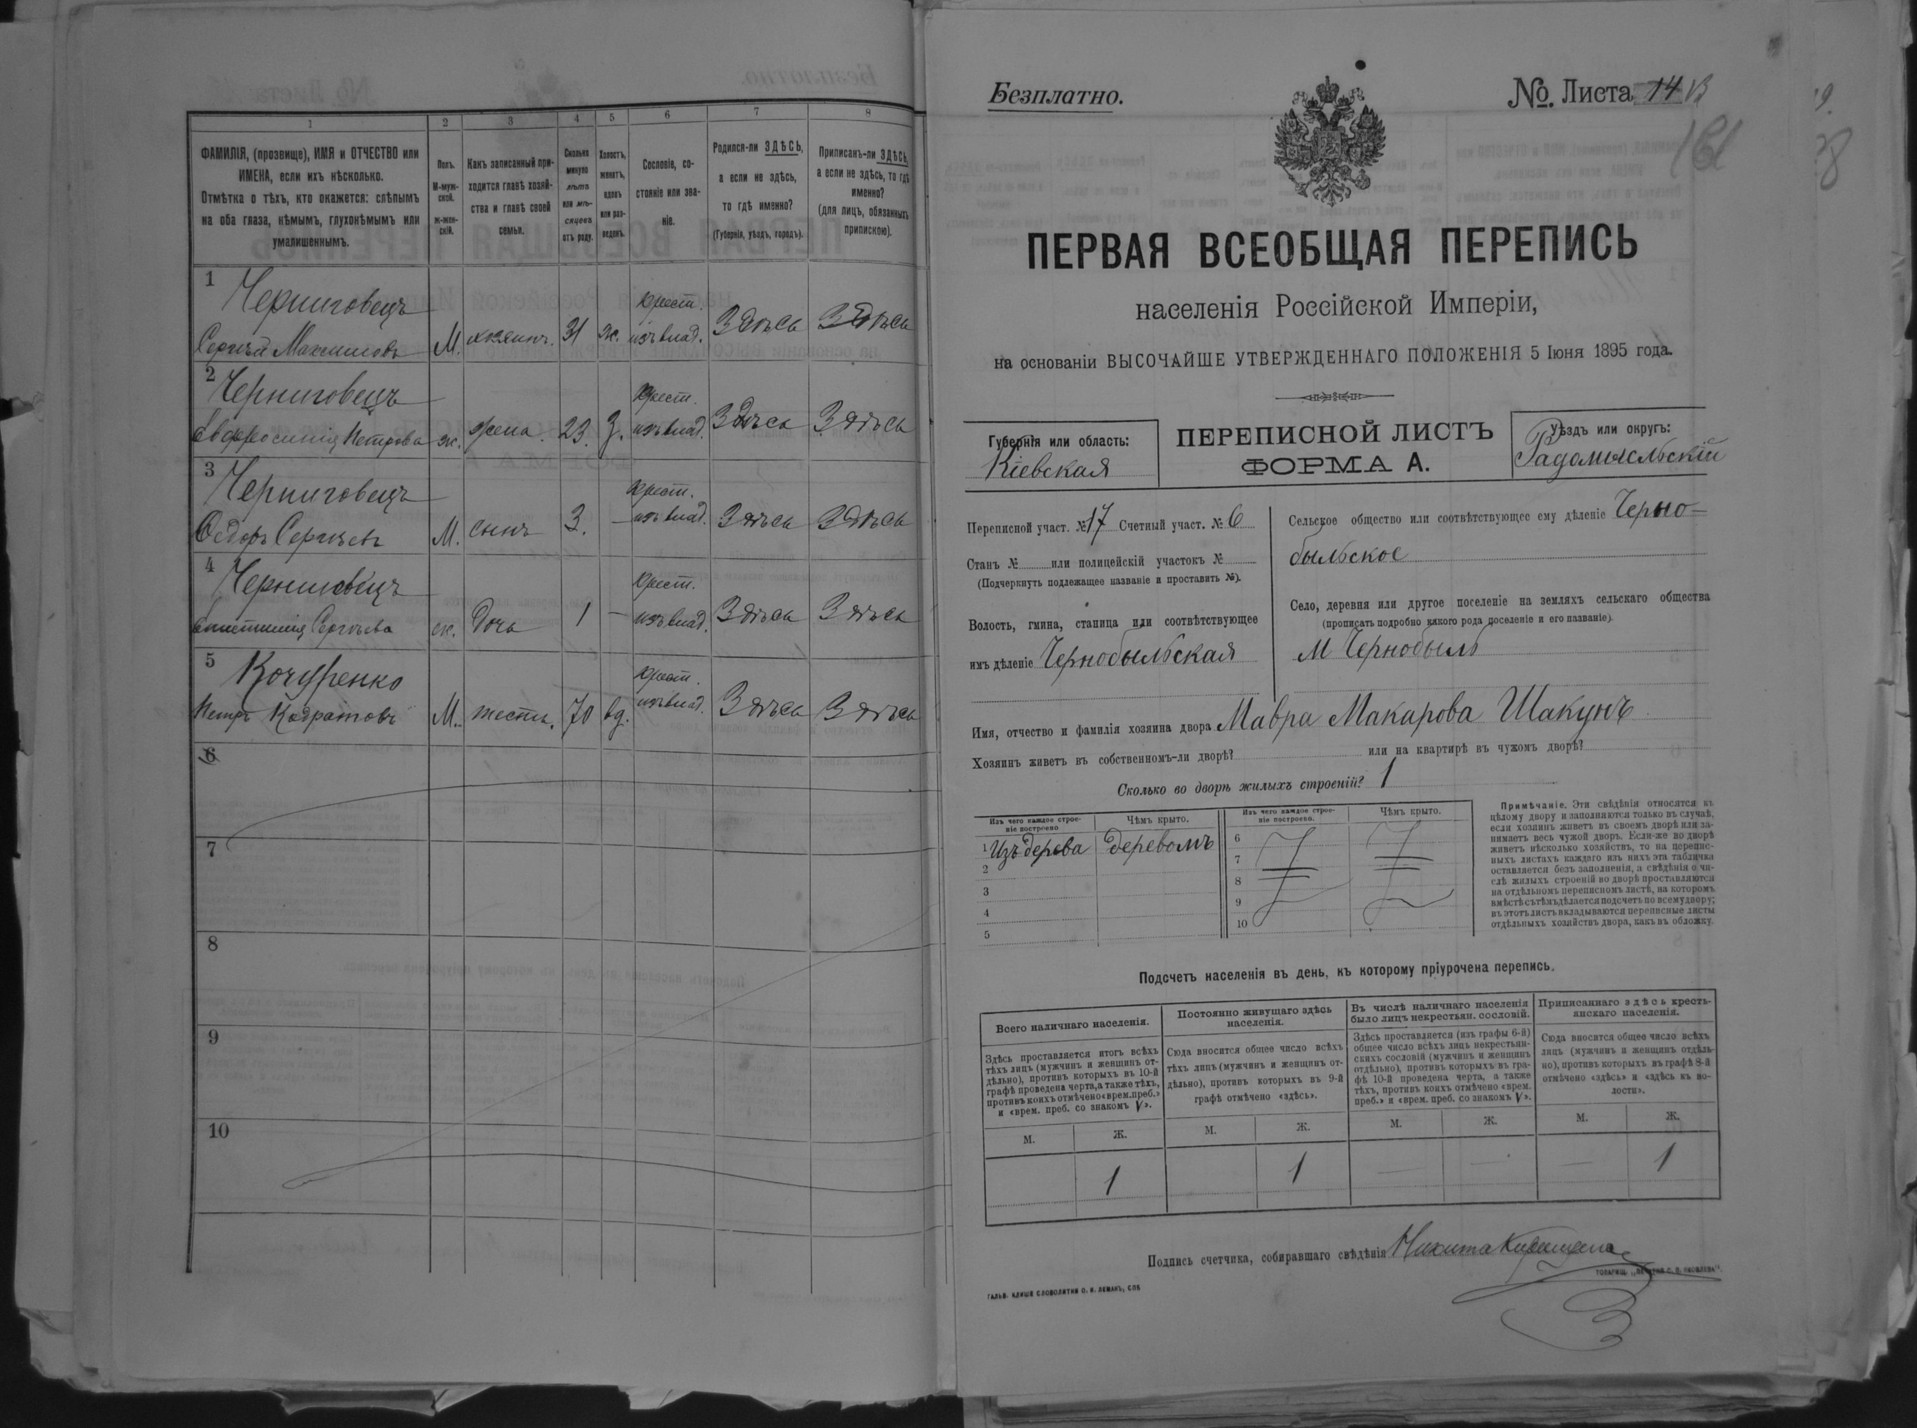 1
2
3
4
5
6
7
8
ФАМИЛІЯ, (прозвище), ИМЯ и ОТЧЕСТВО или
ИМЕНА, если ихъ нѣсколько.
Отмѣтка о тѣхъ, кто окажется: слѣпымъ
на оба глаза, нѣмымъ, глухонѣмымъ или
умалишеннымъ.
Полъ.
М-муж-
ской.
Ж-жен-
скій.
Какъ записанный при-
ходится главѣ хозяй-
ства и главѣ своей
семьи.
Сколько
минуло
лѣтъ
или мѣ-
сяцевъ
отъ роду.
Холостъ,
женатъ,
вдовъ
или раз-
веденъ.
Сословіе, со-
стояніе или зва-
ніе.
Родился-ли ЗДѢСЬ,
а если не здѣсь,
то гдѣ именно?
(Губернія, уѣздъ, городъ).
Приписанъ-ли ЗДѢСЬ,
а если не здѣсь, то гдѣ
именно?
(для лицъ, обязанныхъ
припискою).
1
Черниговецъ
Сергѣй Максимовъ М. хозяинъ. 31 ж. крест. изъ влад. Здѣсь Здѣсь
2
Черниговецъ
Евфросинія Петрова ж. жена. 23. З. крест. изъ влад. Здѣсь Здѣсь
3
Черниговецъ
Ѳедоръ Сергѣевъ М. сынъ 3. — крест. изъ влад. Здѣсь Здѣсь
4
Черниговецъ
Сергѣева ж. дочь 1 — крест. изъ влад. Здѣсь Здѣсь
5
Кочуренко
Петръ Кодратовъ М. тесть. 70 вд. крест. изъ влад. Здѣсь Здѣсь
6
7
8
9
10
Безплатно.
№. Листа 14 В
ПЕРВАЯ ВСЕОБЩАЯ ПЕРЕПИСЬ
населенія Россійской Имперіи,
на основаніи ВЫСОЧАЙШЕ УТВЕРЖДЕННАГО ПОЛОЖЕНІЯ 5 Іюня 1895 года.
Губернія или область:
Кіевская
ПЕРЕПИСНОЙ ЛИСТЪ
ФОРМА А.
Уѣздъ или округъ:
Радомысльскій
Переписной участ. № 17 Счетный участ. № 6
Станъ № или полицейскій участокъ №
(Подчеркнуть подлежащее названіе и проставить №).
Волость, гмина, станица или соотвѣтствующее
имъ дѣленіе Чернобыльская
Сельское общество или соотвѣтствующее ему дѣленіе Черно-
быльское
Село, деревня или другое поселеніе на земляхъ сельскаго общества
(прописать подробно какого рода поселеніе и его названіе).
М Чернобыль
Имя, отчество и фамилія хозяина двора Мавра Макарова Шакунъ
Хозяинъ живетъ въ собственномъ-ли дворѣ? или на квартирѣ въ чужомъ дворѣ?
Сколько во дворѣ жилыхъ строеній? 1
Изъ чего каждое строе-
ніе построено
Чѣмъ крыто.
Изъ чего каждое строе-
ніе построено.
Чѣмъ крыто.
1 Изъ дерева деревомъ
2
3
4
5
6
7
8
9
10
Примѣчаніе. Эти свѣдѣнія относятся къ
цѣлому двору и заполняются только въ случаѣ,
если хозяинъ живетъ въ своемъ дворѣ или за-
нимаетъ весь чужой дворъ. Если-же во дворѣ
живетъ нѣсколько хозяйствъ, то на перепис-
ныхъ листахъ каждаго изъ нихъ эта табличка
оставляется безъ заполненія, а свѣдѣнія о чи-
слѣ жилыхъ строеній во дворѣ проставляются
на отдѣльномъ переписномъ листѣ, на которомъ
вмѣстѣ съ тѣмъ дѣлается подсчетъ по всему двору;
въ этотъ листъ вкладываются переписные листы
отдѣльныхъ хозяйствъ двора, какъ въ обложку.
Подсчетъ населенія въ день, къ которому пріурочена перепись.
Всего наличнаго населенія.
Постоянно живущаго здѣсь
населенія.
Въ числѣ наличнаго населенія
было лицъ некрестьян. сословій.
Приписаннаго здѣсь кресть-
янскаго населенія.
Здѣсь проставляется итогъ всѣхъ
тѣхъ лицъ (мужчинъ и женщинъ от-
дѣльно), противъ которыхъ въ 10-й
графѣ проведена черта, а также тѣхъ,
противъ коихъ отмѣчено «врем. преб.»
и «врем. преб. со знакомъ V».
Сюда вносится общее число всѣхъ
тѣхъ лицъ (мужчинъ и женщинъ от-
дѣльно), противъ которыхъ въ 9-й
графѣ отмѣчено «здѣсь».
Здѣсь проставляется (изъ графы 6-й)
общее число всѣхъ лицъ некрестьян-
скихъ сословій (мужчинъ и женщинъ
отдѣльно), противъ которыхъ въ гра-
фѣ 10-й проведена черта, а также
тѣхъ, противъ коихъ отмѣчено «врем.
преб.» и «врем. преб. со знакомъ V».
Сюда вносится общее число всѣхъ
лицъ (мужчинъ и женщинъ отдѣль-
но), противъ которыхъ въ графѣ 8-й
отмѣчено «здѣсь» и «здѣсь въ во-
лости».
М. Ж. М. Ж. М. Ж. М. Ж.
1 1 — — — 1
Подпись счетчика, собиравшаго свѣдѣнія Никита
ГАЛЬВ. КЛИШЕ СЛОВОЛИТНИ О. И. ЛЕМАНЪ, СПБ
ТОВАРИЩ. „ПЕЧАТНЯ С. П. ЯКОВЛЕВА“.